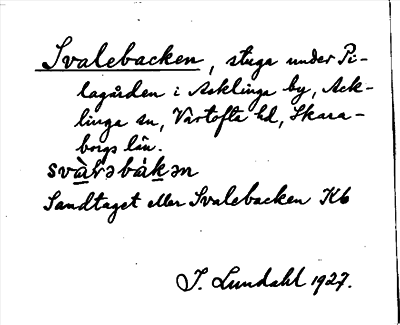 Svalebacken, stuga under Pi-
lagården i Acklinga by, Ack-
linga sn, Vartofta hd, Skara-
borgs län.
Sandtaget eller Svalebacken Kb
J. Lundahl 1927.